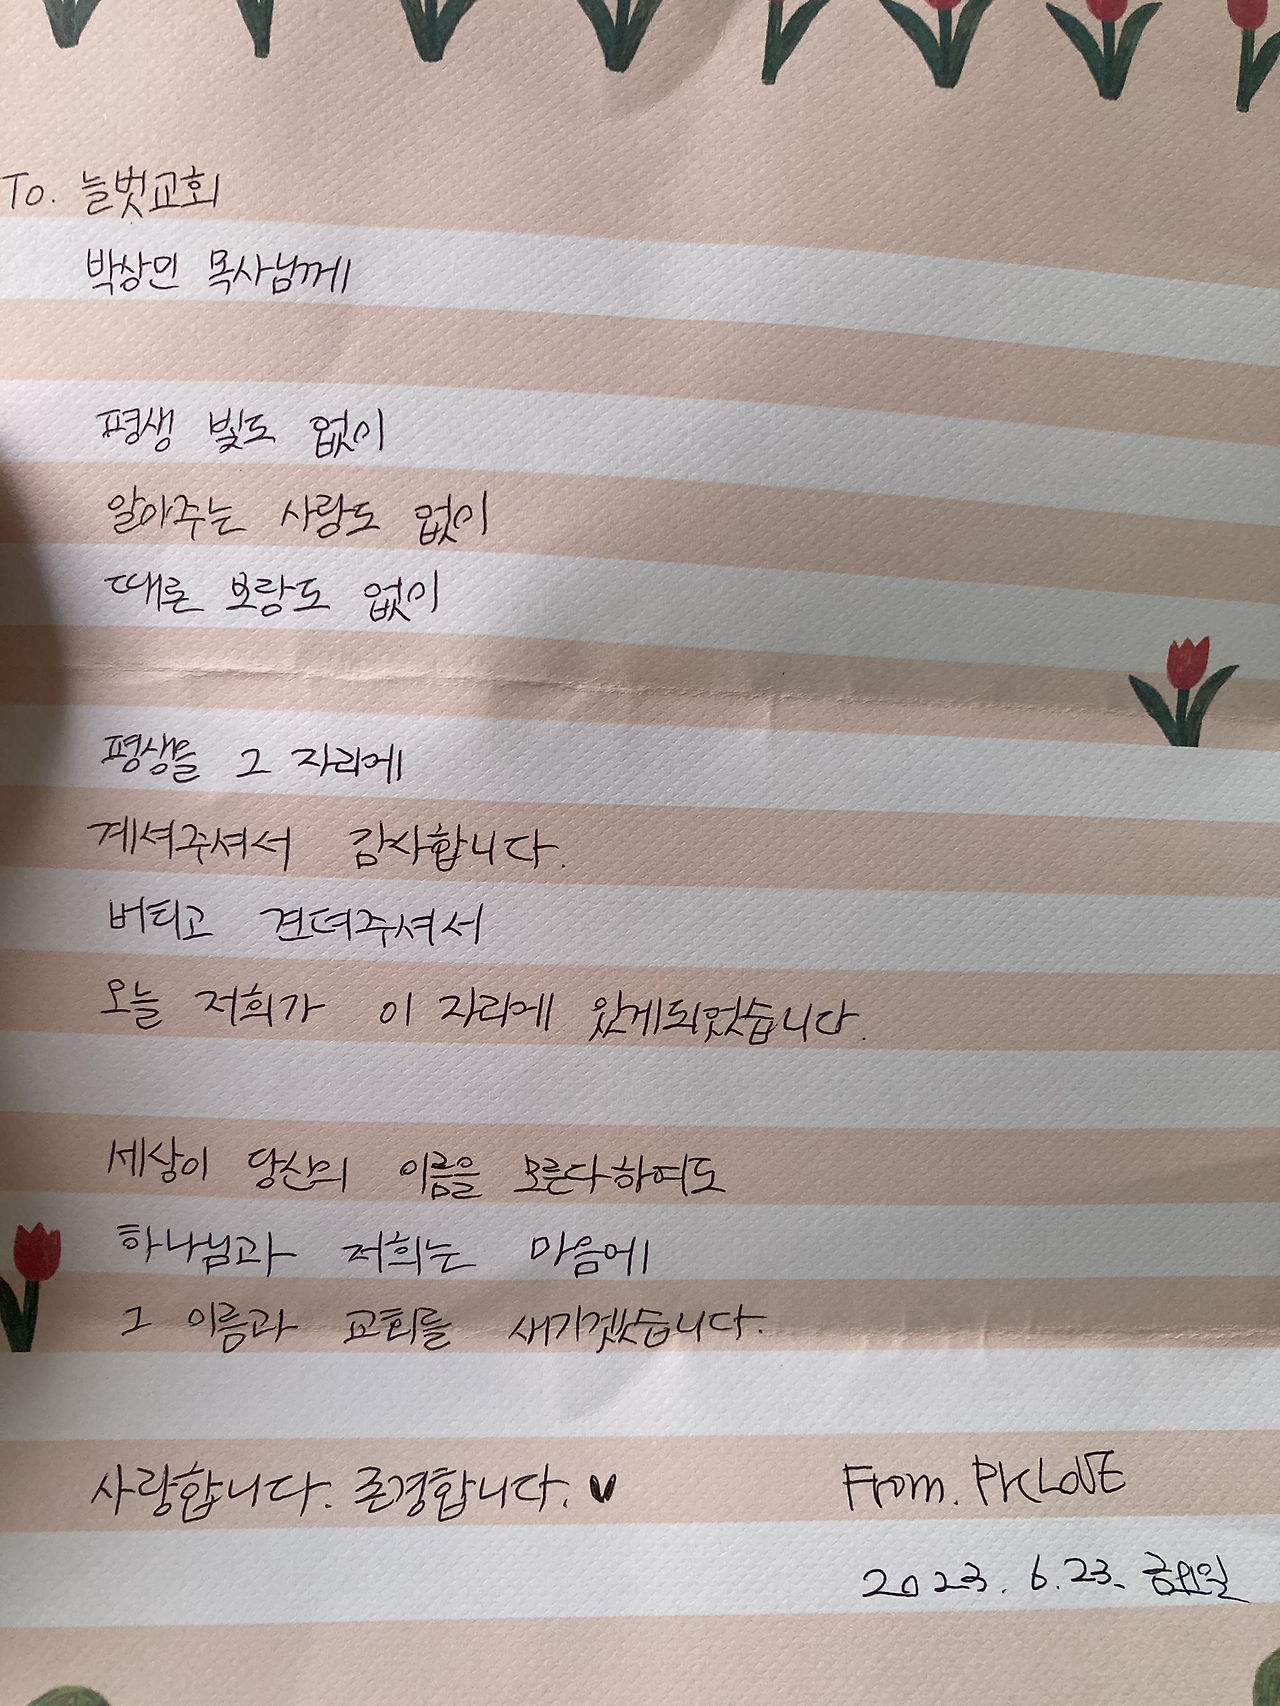 To. 늘벗교회
박상민 목사님께
평생 빛도 없이
알아주는 사람도 없이
때론 보람도 없이
평생을 그 자리에
계셔주셔서 감사합니다.
버티고 견뎌주셔서
오늘 저희가 이 자리에 있게되었습니다.
세상이 당신의 이름을 모른다하여도
하나님과 저희는 마음에
그 이름과 교회를 새기겠습니다.
사랑합니다. 존경합니다. ♥
From. PKLOVE
2023. 6. 23. 금요일